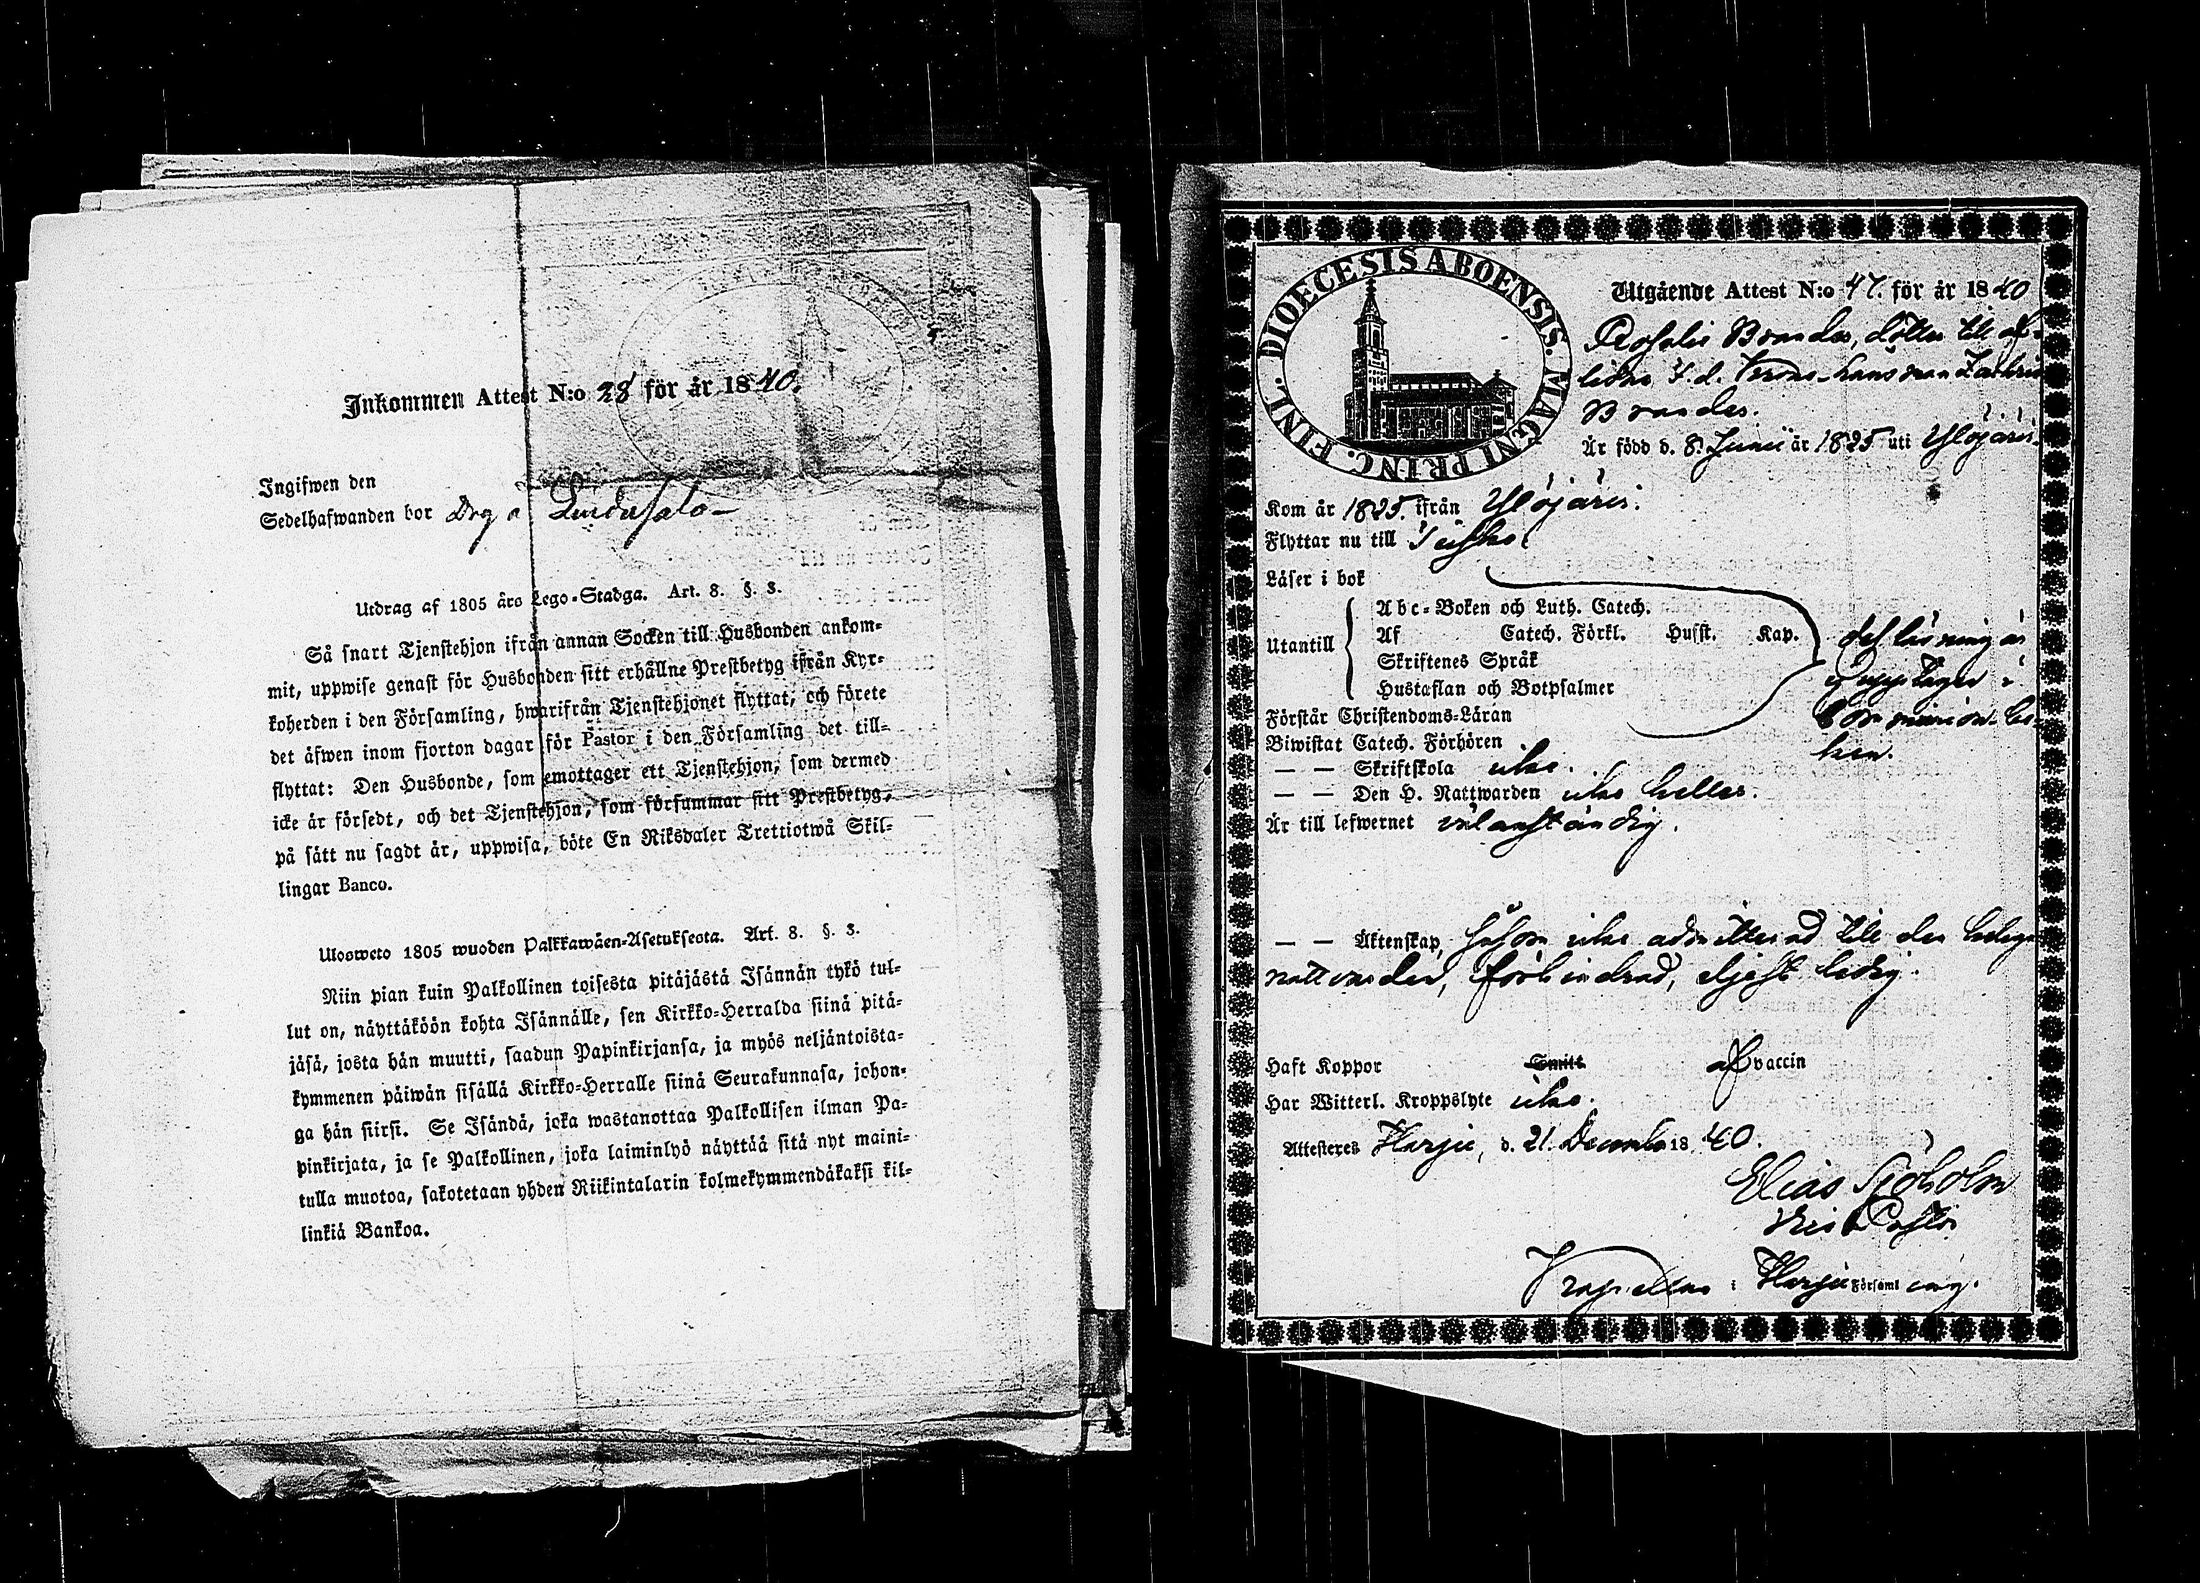 Inkommen Attest N:o 28 för år 1840.
Ingifwen den
Sedelhafwanden bor Drg a Lindusalo
Utdrag af 1805 års Lego-Stadga. Art. 8. §. 3.
Så snart Tjenstehjon ifrån annan Socken till Husbonden ankom-
mit, uppwise genast för Husbonden sitt erhållne Prestbetyg ifrån Kyr-
koherden i den Församling, hwarifrån Tjenstehjonet flyttat, och förete
det äfwen inom fjorton dagar för Pastor i den Församling det till-
flyttat: Den Husbonde, som emottager ett Tjenstehjon, som dermed
icke är försedt, och det Tjenstehjon, som försummar sitt Prestbetyg,
på sätt nu sagdt är, uppwisa, böte En Riksdaler Trettiotwå Skil-
lingar Banco.
Ulosweto 1805 wuoden Palkkawäen-Asetuksesta. Art. 8. §. 3.
Niin pian kuin Palkollinen toisesta pitäjästä Isännän tykö tul-
lut on, näyttäköön kohta Isännälle, sen Kirkko-Herralda siinä pitä-
jäsä, josta hän muutti, saadun Papinkirjansa, ja myös neljäntoista-
kymmenen päiwän sisällä Kirkko-Herralle siinä Seurakunnasa, johon-
ga hän siirsi. Se Isändä, joka wastanottaa Palkollisen ilman Pa-
pinkirjata, ja se Palkollinen, joka laiminlyö näyttää sitä nyt maini-
tulla muotoa, sakotetaan yhden Riikintalarin kolmekymmendäkaksi kil-
linkiä Bankoa.
DIOECESIS ABOENSIS. MAGNI PRINC. FINL.
Utgående Attest N:o 47. för år 1840
Rosalie Brander, dotter till af-
lidne T. d. Krono Länsman Zachris
Brander.
Är född d. 8. Junii år 1825 uti Ylöjärvi.
Kom år 1825. ifrån Ylöjärvi.
Flyttar nu till
Läser i bok
Utantill
Abc-Boken och Luth. Catech.
Af Catech. Förkl. Husst. Kap.
Skriftenes Språk
Hustaflan och Botpsalmer
Förstår Christendoms-Läran
Biwistat Catech. Förhören
def läsning är
ej upptagen i
Communion bo-
ken.
— — Skriftskola icke.
— — Den H. Nattwarden icke heller.
Är till lefwernet välanständig.
— — Äktenskap såsom icke admitterad till den helige
nattvarden, förhindrad, eljest ledig.
Haft Koppor Smitt af vaccin
Har Witterl. Kroppslyte icke.
Attesteres Harju, d. 21. December 1840.
Elias Sjöholm
Vice Pastor
Kapellan i Harju Församling.